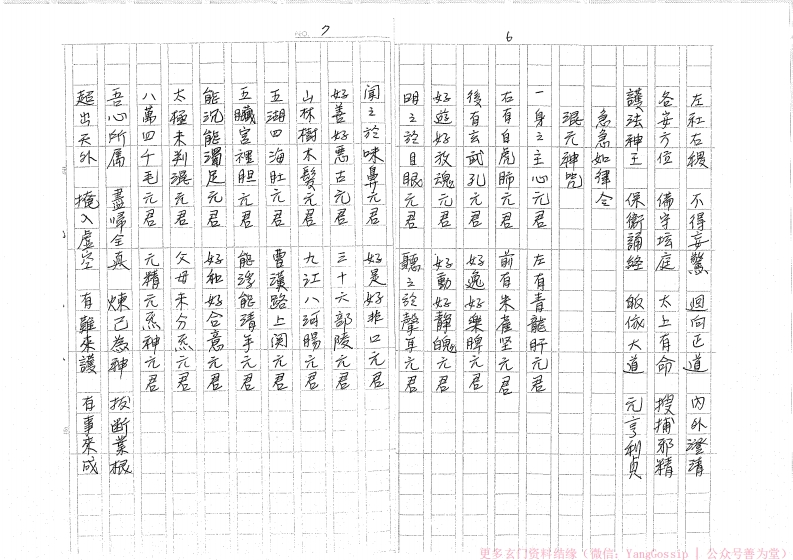 6
左社右稷 不得妄驚 迴向正道 內外澄清
各安方位 備守坛庭 太上有命 搜捕邪精
護法神王 保衛誦經 皈依大道 元亨利貞
急急如律令
混元神咒
一身之主心元君 左有青龍肝元君
右有白虎肺元君 前有朱雀坚元君
後有玄武孔元君 好逸好樂脾元君
好遊好放魂元君 好動好靜魄元君
明之於目眼元君 聽之於聲耳元君
NO. 7
聞之於味鼻元君 好是好非口元君
好善好惡古元君 三十六部陵元君
山林樹木髮元君 九江八河腸元君
五湖四海肚元君 曹漢路上関元君
五臟宮裡胆元君 能浮能清手元君
能沉能濁足元君 好和好合意元君
太極未判混元君 父母未分炁元君
八萬四千毛元君 元精元炁神元君
吾心所属 盡歸全真 煉己為神 拔断業根
超出天外 掩入虛空 有難來護 有事來成
更多玄门资料结缘（微信：YangGossip | 公众号善为堂）